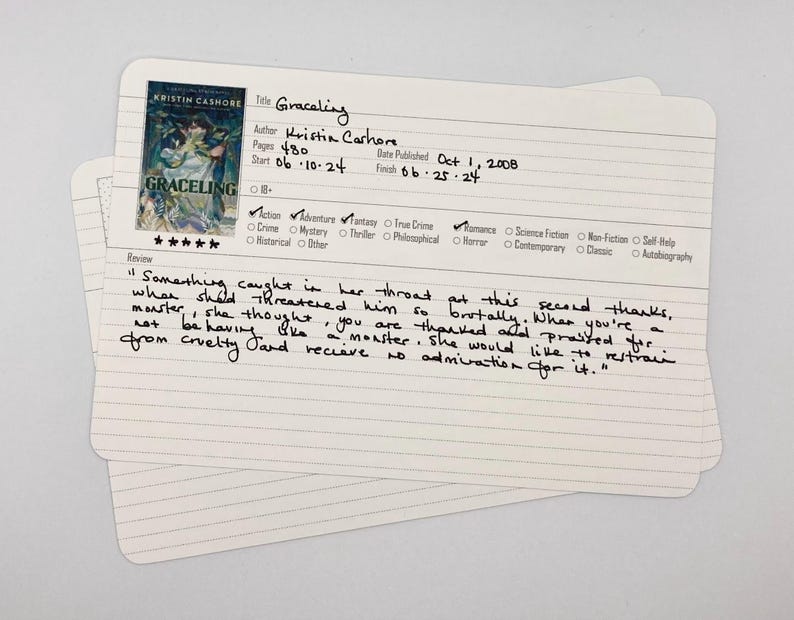 A GRACELING REALM NOVEL
KRISTIN CASHORE
GRACELING
Title Graceling
Author Kristin Cashore
Pages 480 Date Published Oct 1, 2008
Start 06 · 10 · 24 Finish 06 · 25 · 24
18+
Action Adventure Fantasy True Crime Romance Science Fiction Non-Fiction Self-Help
Crime Mystery Thriller Philosophical Horror Contemporary Classic Autobiography
Historical Other
Review
"Something caught in her throat at this second thanks,
when she'd threatened him so brutally. When you're a
monster, she thought, you are thanked and praised for
not behaving like a monster. She would like to restrain
from cruelty and recieve no admiration for it."